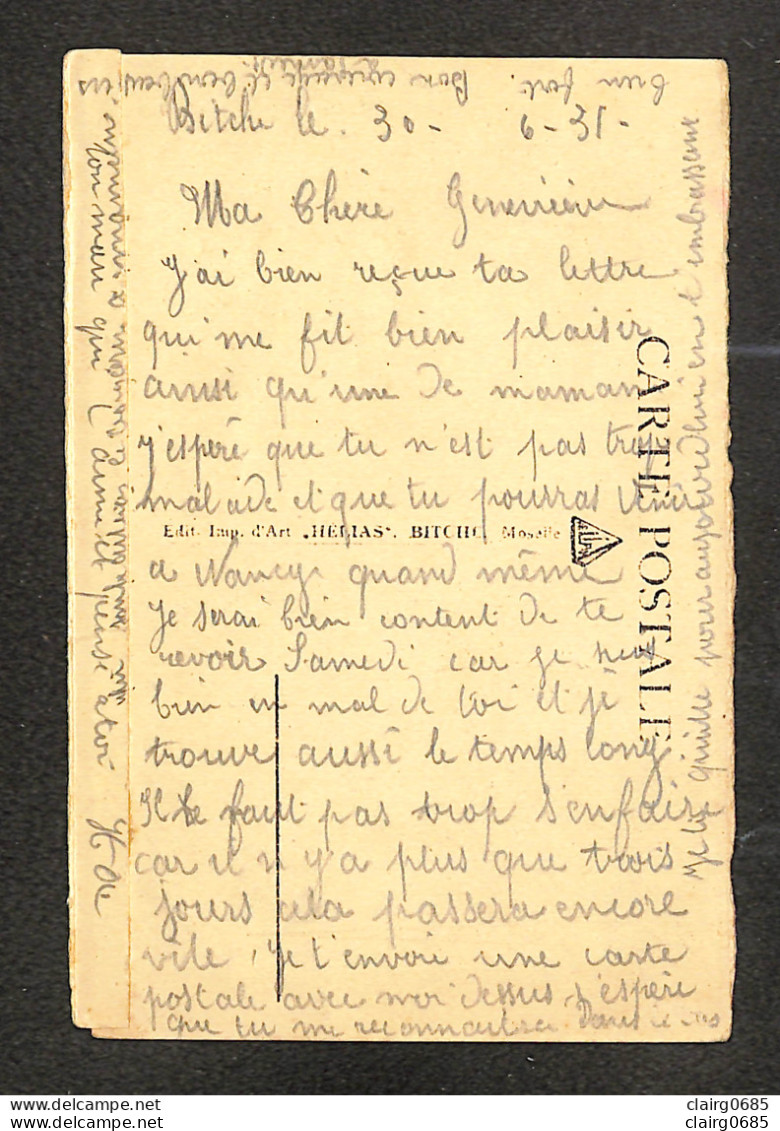 Bitche le. 30- 6-31-
Ma Chère Geneviève
J'ai bien reçue ta lettre
qui me fit bien plaisir
ainsi qu'une de maman
j'espère que tu n'est pas trop
malade et que tu pourras venir
Edit. Imp. d'Art "HÉLIAS". BITCHE, Moselle
a Nancy quand même
je serai bien content de te
revoir Samedi car je
bien en mal de toi et je
trouve aussi le temps long
Il ne faut pas trop s'enfaire
car il n'y a plus que trois
jours cela passera encore
vite, je t'envoie une carte
postale avec moi dessus j'espère
que tu me reconnaitra Dans le
CARTE POSTALE
Je te quitte pour aujourd'hui en t'embrassant
bien fort. Bon courage et
ton mari qui t'aime et pense a toi
clairg0685
clairg0685